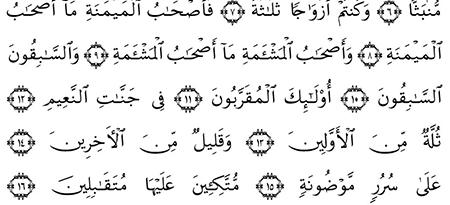 مُّنۢبَثًّا ﴿٦﴾ وَكُنتُمْ أَزْوَٰجًا ثَلَٰثَةً ﴿٧﴾ فَأَصْحَٰبُ ٱلْمَيْمَنَةِ مَآ أَصْحَٰبُ
ٱلْمَيْمَنَةِ ﴿٨﴾ وَأَصْحَٰبُ ٱلْمَشْـَٔمَةِ مَآ أَصْحَٰبُ ٱلْمَشْـَٔمَةِ ﴿٩﴾ وَٱلسَّٰبِقُونَ
ٱلسَّٰبِقُونَ ﴿١٠﴾ أُو۟لَٰٓئِكَ ٱلْمُقَرَّبُونَ ﴿١١﴾ فِى جَنَّٰتِ ٱلنَّعِيمِ ﴿١٢﴾
ثُلَّةٌ مِّنَ ٱلْأَوَّلِينَ ﴿١٣﴾ وَقَلِيلٌ مِّنَ ٱلْءَاخِرِينَ ﴿١٤﴾
عَلَىٰ سُرُرٍ مَّوْضُونَةٍ ﴿١٥﴾ مُّتَّكِـِٔينَ عَلَيْهَا مُتَقَٰبِلِينَ ﴿١٦﴾